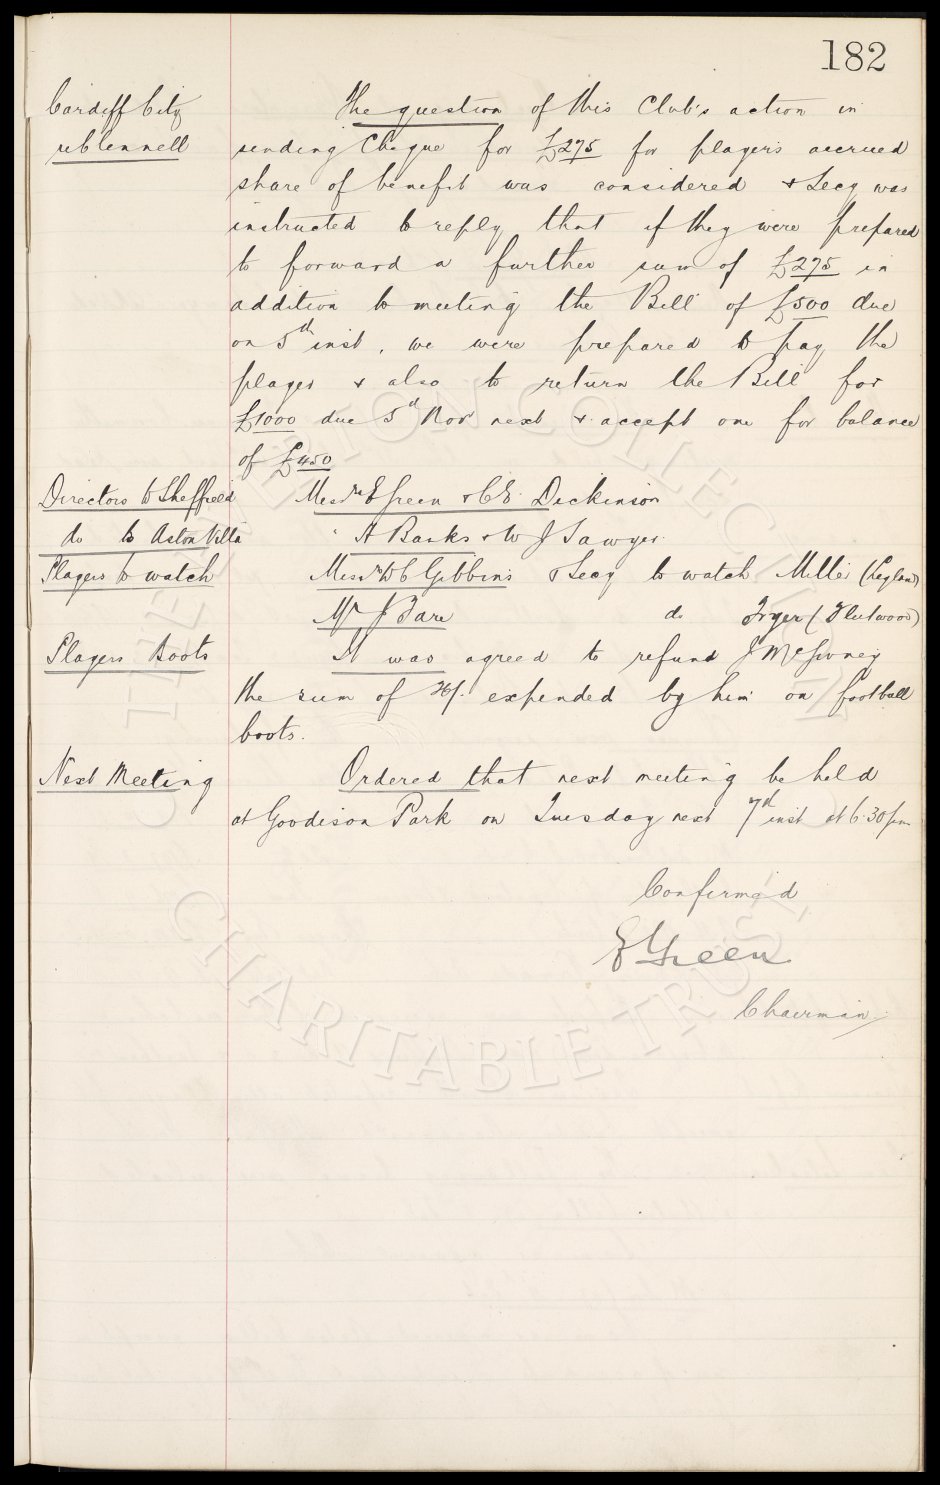 182
Cardiff City
re Clennell
The question of this Club's action in
sending Cheque for £275 for player's accrued
share of benefit was considered & Secy was
instructed to reply that if they were prepared
to forward a further sum of £275 in
addition to meeting the Bill of £500 due
on 5th inst, we were prepared to pay the
player & also to return the Bill for
£1000 due 5th Nov next & accept one for balance
of £450
Directors to Sheffield Messrs E Green & C E Dickinson
do to Aston Villa " A Banks & W J Sawyer
Players to watch Messrs W C Gibbins & Secy to watch Mille (Leyland)
Mr J Fare do Fryer (Fleetwood)
Players Boots It was agreed to refund J
the sum of expended by him on football
boots.
Next Meeting Ordered that next meeting be held
at Goodison Park on Tuesday next 7th inst at 6.30 pm
Confirmed
E Green
Chairman
THE EVERTON COLLECTION
CHARITABLE TRUST